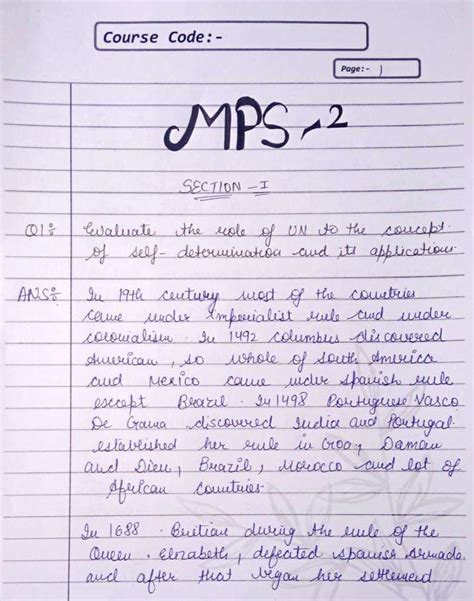 Course Code:-
Page:- 1
MPS-2
SECTION-I
Q1: Evaluate the role of UN to the concept
of self-determination and its application
ANS: In 19th century most of the countries
came under imperialist rule and under
colonialism. In 1492 columbus discovered
American, so whole of South America
and Mexico came under spanish rule
except Brazil. In 1498 Portuguese Vasco
De Gama discovered India and Portugal
established her rule in Goa, Daman
and Dieu, Brazil, Morocco and lot of
African countries.
In 1688. Britian during the rule of the
Queen. Elizabeth, defeated spanish Armada
and after that began her settlement